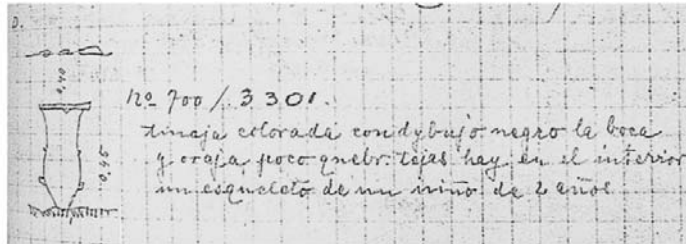 D.
0,40
Nº 700 / 3301.
tinaja colorada con dybujo negro la boca
y oraja poco quebr. tejas hay en el interior
un esqueleto de un niño de 2 años
0,45